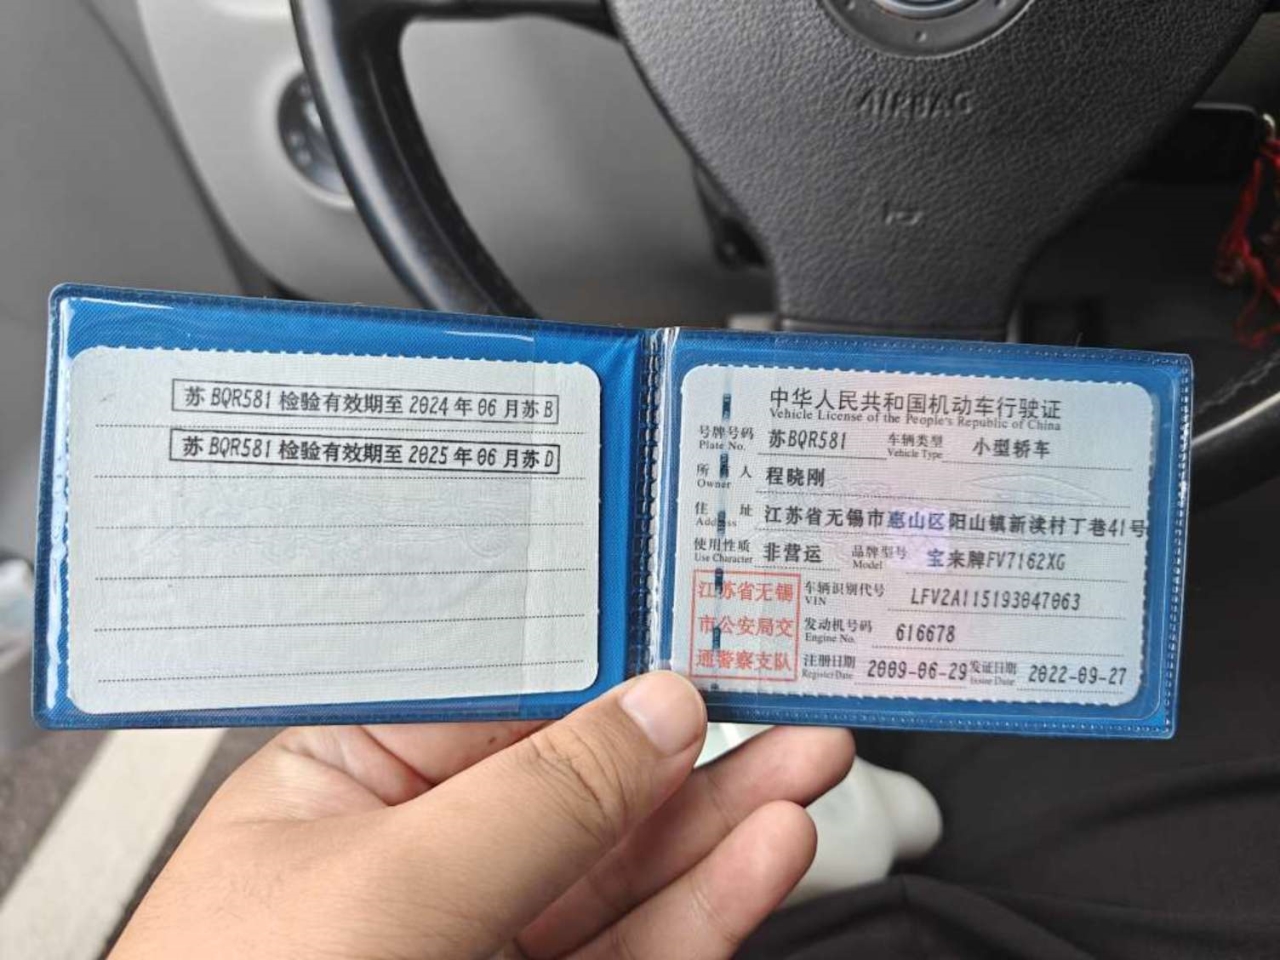 AIRBAG
苏 BQR581 检验有效期至 2024 年 06 月苏 B
苏 BQR581 检验有效期至 2025 年 06 月苏 D
中华人民共和国机动车行驶证
Vehicle License of the People's Republic of China
号牌号码 苏BQR581 车辆类型 小型轿车
Plate No. Vehicle Type
所有人 程晓刚
Owner
住址 江苏省无锡市惠山区阳山镇新渎村丁巷41号
Address
使用性质 非营运 品牌型号 宝来牌FV7162XG
Use Character Model
江苏省无锡
市公安局交
通警察支队
车辆识别代号 LFV2A115193047063
VIN
发动机号码 616678
Engine No.
注册日期 2009-06-29 发证日期 2022-09-27
Register Date Issue Date